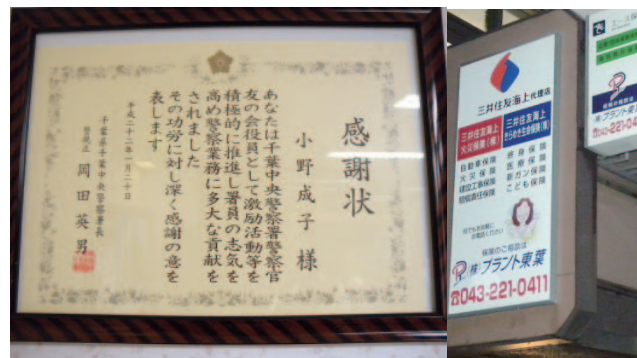 感謝状
小野成子 様
あなたは千葉中央警察署警察官
友の会役員として激励活動等を
積極的に推進し署員の志気を
高め警察業務に多大な貢献を
されました
その功労に対し深く感謝の意を
表します
平成二十二年一月二十日
千葉県千葉中央警察署長
警視正 岡田英男
三井住友海上代理店
三井住友海上
火災保険(株)
三井住友海上
きらめき生命保険(株)
自動車保険
火災保険
建設工事保険
賠償責任保険
終身保険
医療保険
新ガン保険
こども保険
保険のご相談は
(株)プラント東葉
☎043-221-0411